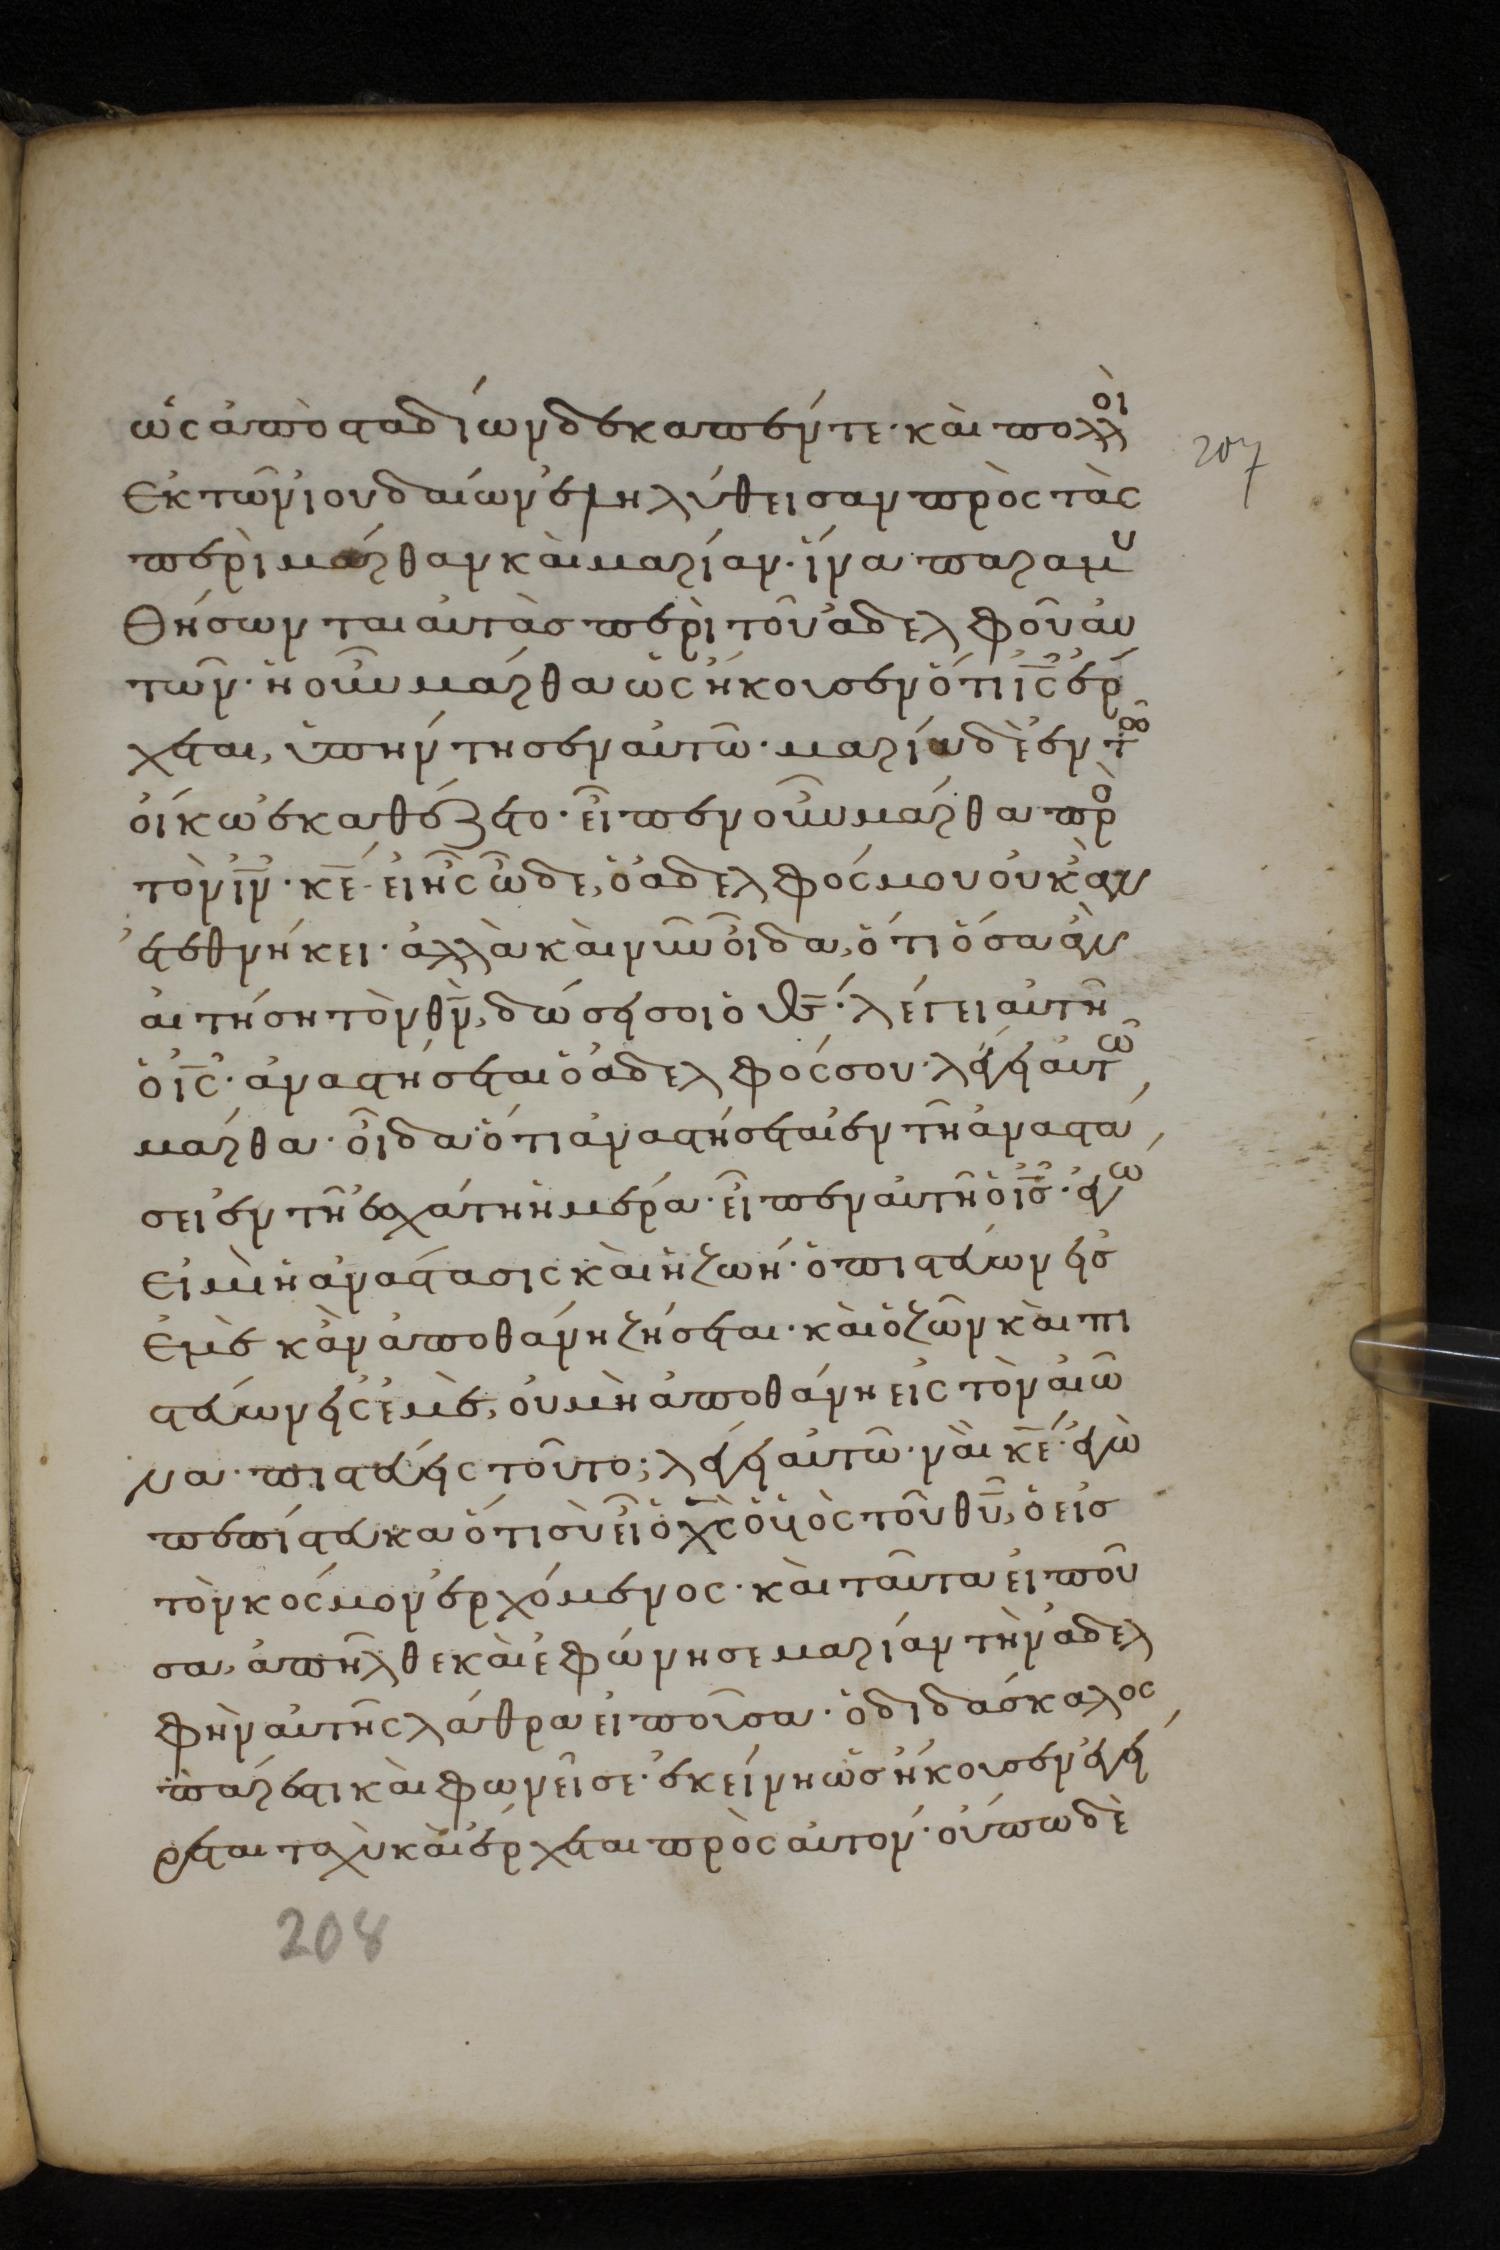 ὡς ἀπὸ σταδίων δεκαπέντε· καὶ πολλοὶ
207
ἐκ τῶν ἰουδαίων ἐληλύθεισαν πρὸς τὰς
περὶ μάρθαν καὶ μαρίαν· ἵνα παραμυ
θήσωνται αὐτὰσ περὶ τοῦ ἀδελφοῦ αὐ
τῶν· ἡ οὖν μάρθα ὡς ἤκουσεν ὅτι ἰς ἔρ
χεται, ὑπήντησεν αὐτῶ· μαρία δὲ ἐν τῶ
οἴκω ἐκαθέζετο· εἶπεν οὖν μάρθα πρὸ
τὸν ἰν· κε· εἰ ἦς ὧδε, ὁ ἀδελφός μου οὐκ ἂν
ἐτεθνήκει· ἀλλὰ καὶ νῦν οἶδα, ὅτι ὅσα ἂν
αἰτήση τὸν θν, δώσει σοι ὁ θς· λέγει αὐτῆ
ὁ ἰς· ἀναστήσεται ὁ ἀδελφός σου· λέγει αὐτῶ
μάρθα· οἶδα ὅτι ἀναστήσεται ἐν τῆ ἀναστά
σει ἐν τῆ ἐσχάτη ἡμέρα· εἶπεν αὐτῆ ὁ ἰς· ἐγώ
εἰμὶ ἡ ἀνάστασις καὶ ἡ ζωή· ὁ πιστεύων εἰσ
ἐμὲ κἂν ἀποθάνη ζήσεται· καὶ ὁ ζῶν καὶ πι
στεύων εἰς ἐμὲ, οὐ μὴ ἀποθάνη εἰς τὸν αἰῶ
να· πιστεύεις τοῦτο; λέγει αὐτῶ· ναὶ κε· ἐγὼ
πεπίστευκα ὅτι σὺ εἶ ὁ χς ὁ υἱὸς τοῦ θυ, ὁ εἰσ
τὸν κόσμον ἐρχόμενος· καὶ ταῦτα εἰποῦ
σα, ἀπῆλθε καὶ ἐφώνησε μαρίαν τὴν ἀδελ
φὴν αὐτῆς λάθρα εἰποῦσα· ὁ διδάσκαλος
πάρεστι καὶ φωνεῖ σε· ἐκείνη ὡσ ἤκουσεν ἐγεί
ρεται ταχὺ καὶ ἔρχεται πρὸς αὐτον· οὔπω δὲ
208